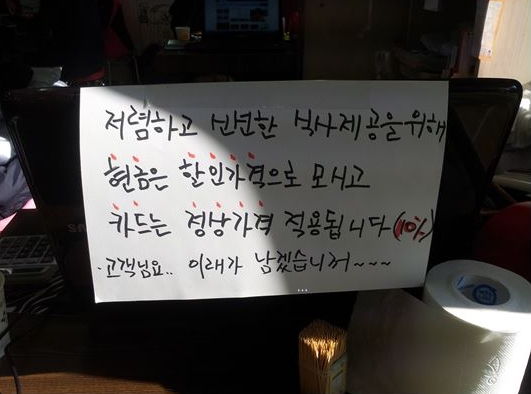 저렴하고 신선한 식사제공을위해
현금은 할인가격으로 모시고
카드는 정상가격 적용됩니다(10%)
·고객님요.. 이래가 남겠습니꺼~~~~